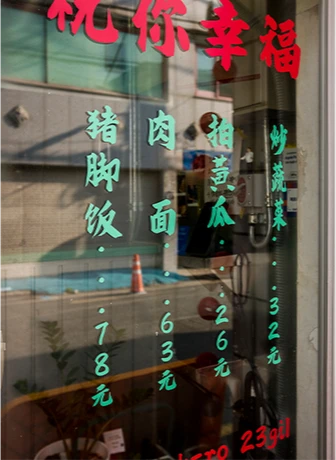 祝你幸福
猪脚饭····78元
肉面···63元
拍黄瓜···26元
炒蔬菜···32元
23gil